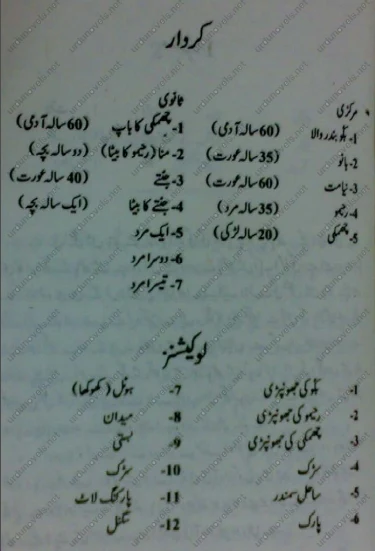 کردار
مرکزی
1- بلّو بندر والا (60 سالہ آدمی)
2- بانو (35 سالہ عورت)
3- نیامت (60 سالہ عورت)
4- رجیو (35 سالہ مرد)
5- چھمکی (20 سالہ لڑکی)
ثانوی
1- چھمکی کا باپ (60 سالہ آدمی)
2- منا (رجیو کا بیٹا) (دو سالہ بچہ)
3- جنتے (40 سالہ عورت)
4- جنتے کا بیٹا (ایک سالہ بچہ)
5- ایک مرد
6- دوسرا مرد
7- تیسرا مرد
لوکیشنز
1- بلّو کی جھونپڑی
2- رجیو کی جھونپڑی
3- چھمکی کی جھونپڑی
4- سڑک
5- ساحل سمندر
6- پارک
7- ہوٹل (کھوکھا)
8- میدان
9- بستی
10- سڑک
11- پارکنگ لاٹ
12- سگنل